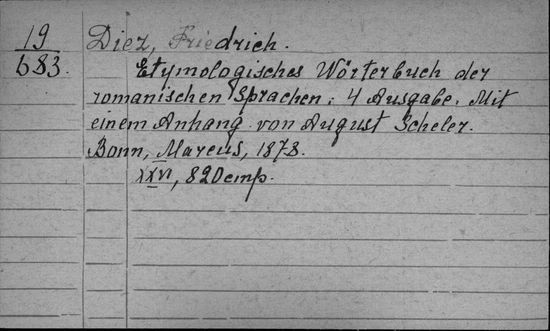 19 Diez, Friedrich.
683. Etymologisches Wörterbuch der
romanischen Sprachen. 4 Ausgabe. Mit
einem Anhang von August Scheler.
Bonn, Marcus, 1878.
XXVI, 820 стр.